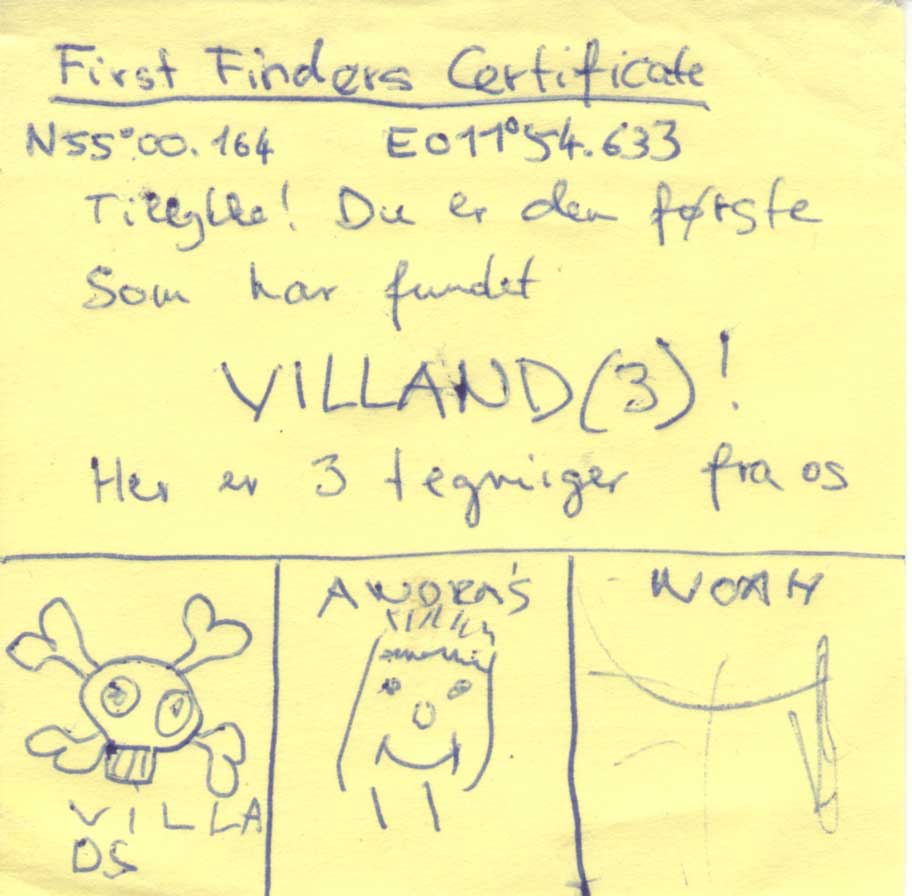 First Finders Certificate
N55°00.164 E011°54.633
Tillykke! Du er den første
Som har fundet
VILLAND(3)!
Her er 3 tegninger fra os
ANDRÁS
NOAH
VILLA
DS